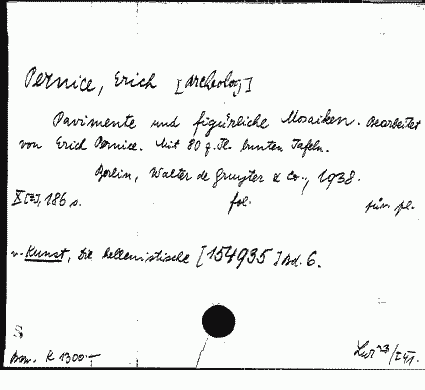 Pernice, Erich [Archeolog]
Pavimente und figürliche Mosaiken. Bearbeitet
von Erich Pernice. Mit 80 z. Tl. bunten Tafeln.
Berlin, Walter de Gruyter & Co., 1938.
X [II], 186 s. fol.
v. Kunst, Die hellenistische [154935] Bd. 6.
S
K 1300.-